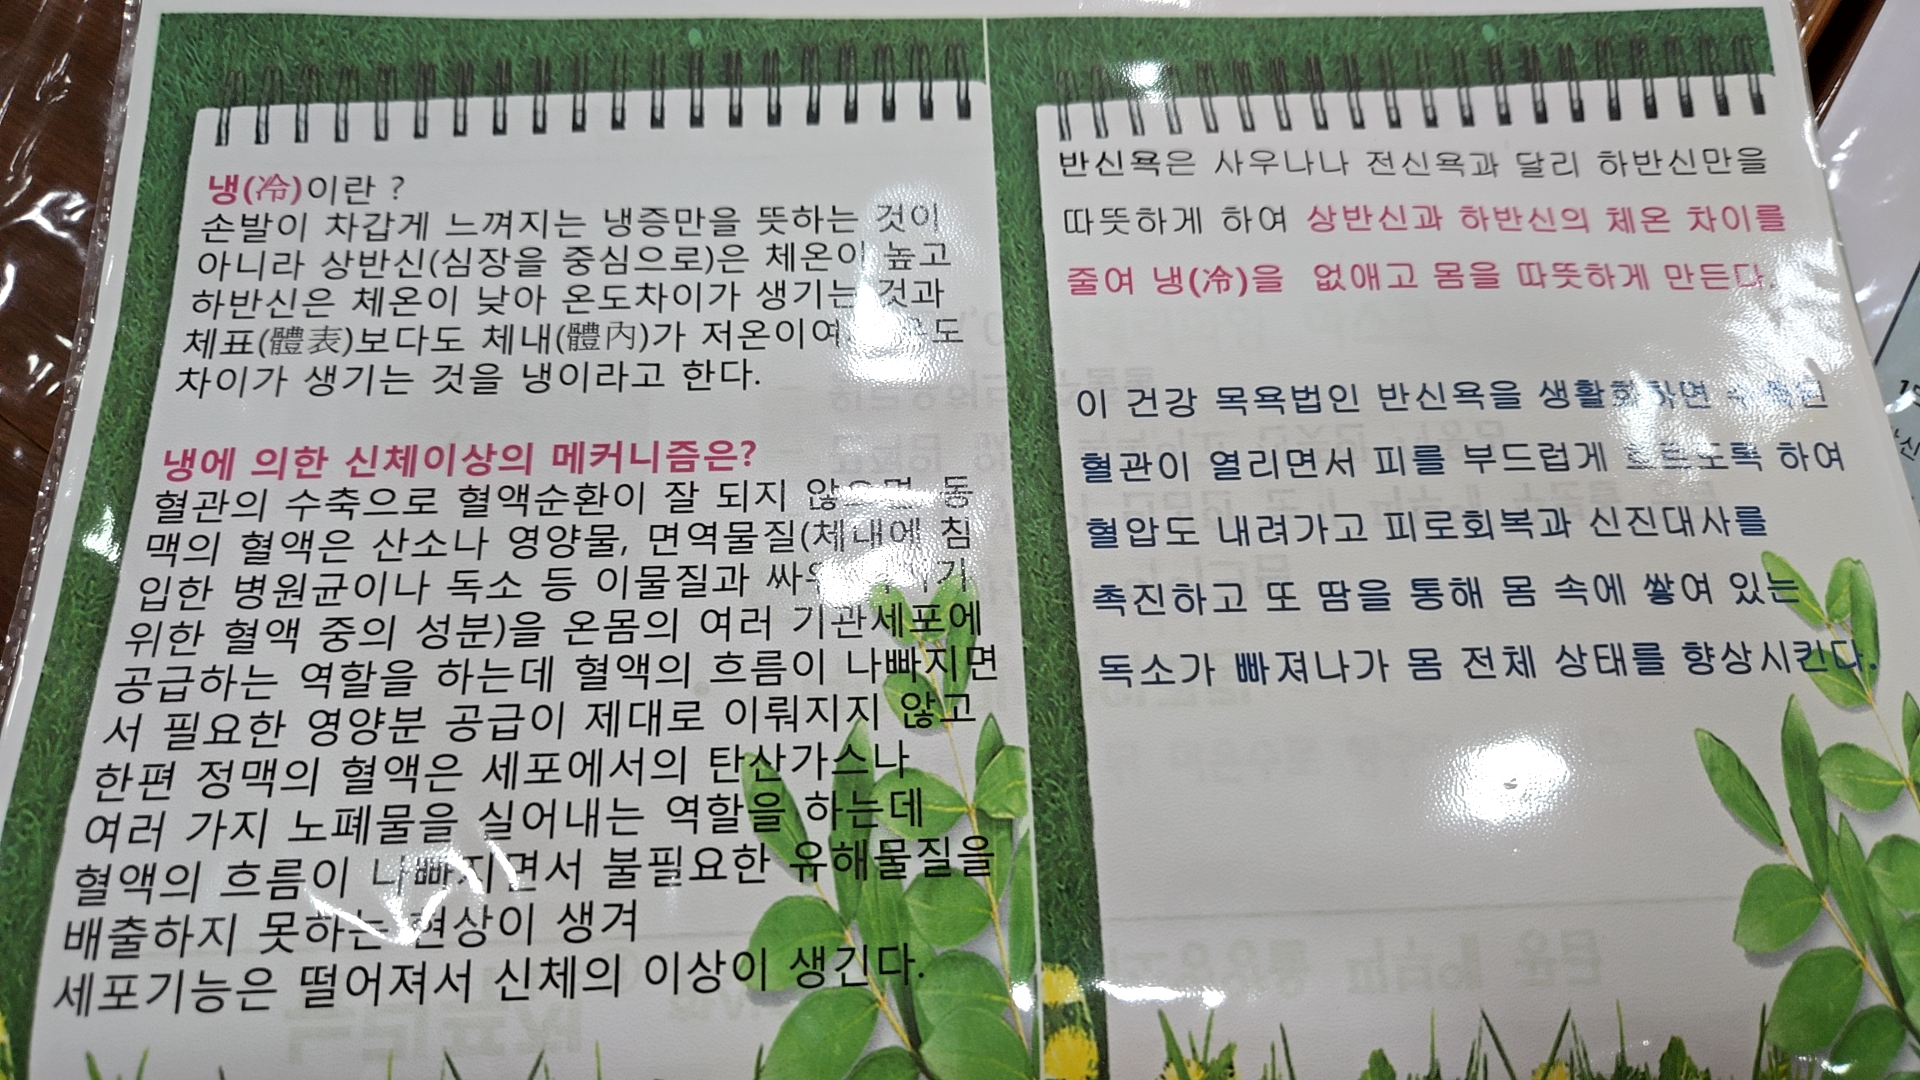 냉(冷)이란 ?
손발이 차갑게 느껴지는 냉증만을 뜻하는 것이
아니라 상반신(심장을 중심으로)은 체온이 높고
하반신은 체온이 낮아 온도차이가 생기는 것과
체표(體表)보다도 체내(體內)가 저온이여
차이가 생기는 것을 냉이라고 한다.
냉에 의한 신체이상의 메커니즘은?
혈관의 수축으로 혈액순환이 잘 되지 않으면 동
맥의 혈액은 산소나 영양물, 면역물질(체내에 침
입한 병원균이나 독소 등 이물질과
위한 혈액 중의 성분)을 온몸의 여러 기관세포에
공급하는 역할을 하는데 혈액의 흐름이 나빠지면
서 필요한 영양분 공급이 제대로 이뤄지지 않고
한편 정맥의 혈액은 세포에서의 탄산가스나
여러 가지 노폐물을 실어내는 역할을 하는데
혈액의 흐름이 나빠지면서 불필요한 유해물질을
배출하지 못하는 현상이 생겨
세포기능은 떨어져서 신체의 이상이 생긴다.
반신욕은 사우나나 전신욕과 달리 하반신만을
따뜻하게 하여 상반신과 하반신의 체온 차이를
줄여 냉(冷)을 없애고 몸을 따뜻하게 만든다.
이 건강 목욕법인 반신욕을 생활화하면
혈관이 열리면서 피를 부드럽게 흐르도록 하여
혈압도 내려가고 피로회복과 신진대사를
촉진하고 또 땀을 통해 몸 속에 쌓여 있는
독소가 빠져나가 몸 전체 상태를 향상시킨다.